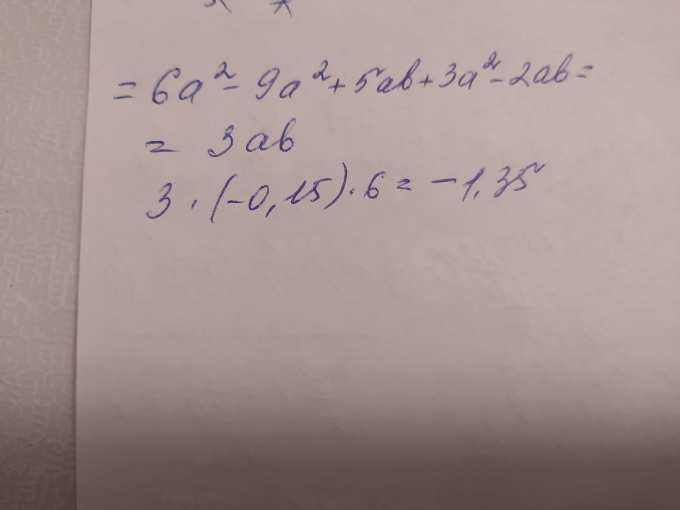 = 6a² - 9a² + 5ab + 3a² - 2ab =
= 3ab
3 · (-0,15) · 6 = -1,35